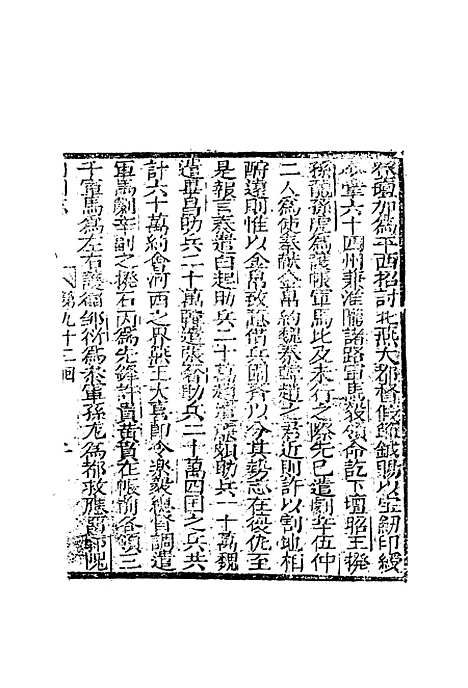 加為平西招討北燕大都督假節鉞賜以寶劍印綬
六十四州兼淮隴諸路軍馬毅領命訖下壇昭王撥
孫龍孫虎為護帳軍馬比及未行之際先已遣劇辛伍仲
二人為使奉獻金帛約魏秦韓趙之君近則許以割地相
酧遠則惟以金帛致謝借兵圖齊以分其勢志在復仇至
是報言秦遣白起助兵二十萬趙遣廉頗助兵二十萬魏
遣畢昌助兵二十萬韓遣張奢助兵二十萬四国之兵共
計六十萬約會河西之界燕王大喜即令樂毅總督調遣
軍馬劇辛副之撥石丙為先鋒許貴黃貫在帳前各領三
千軍馬為左右護衛鄒衍為叅軍孫龙為都救應
第九十二囬